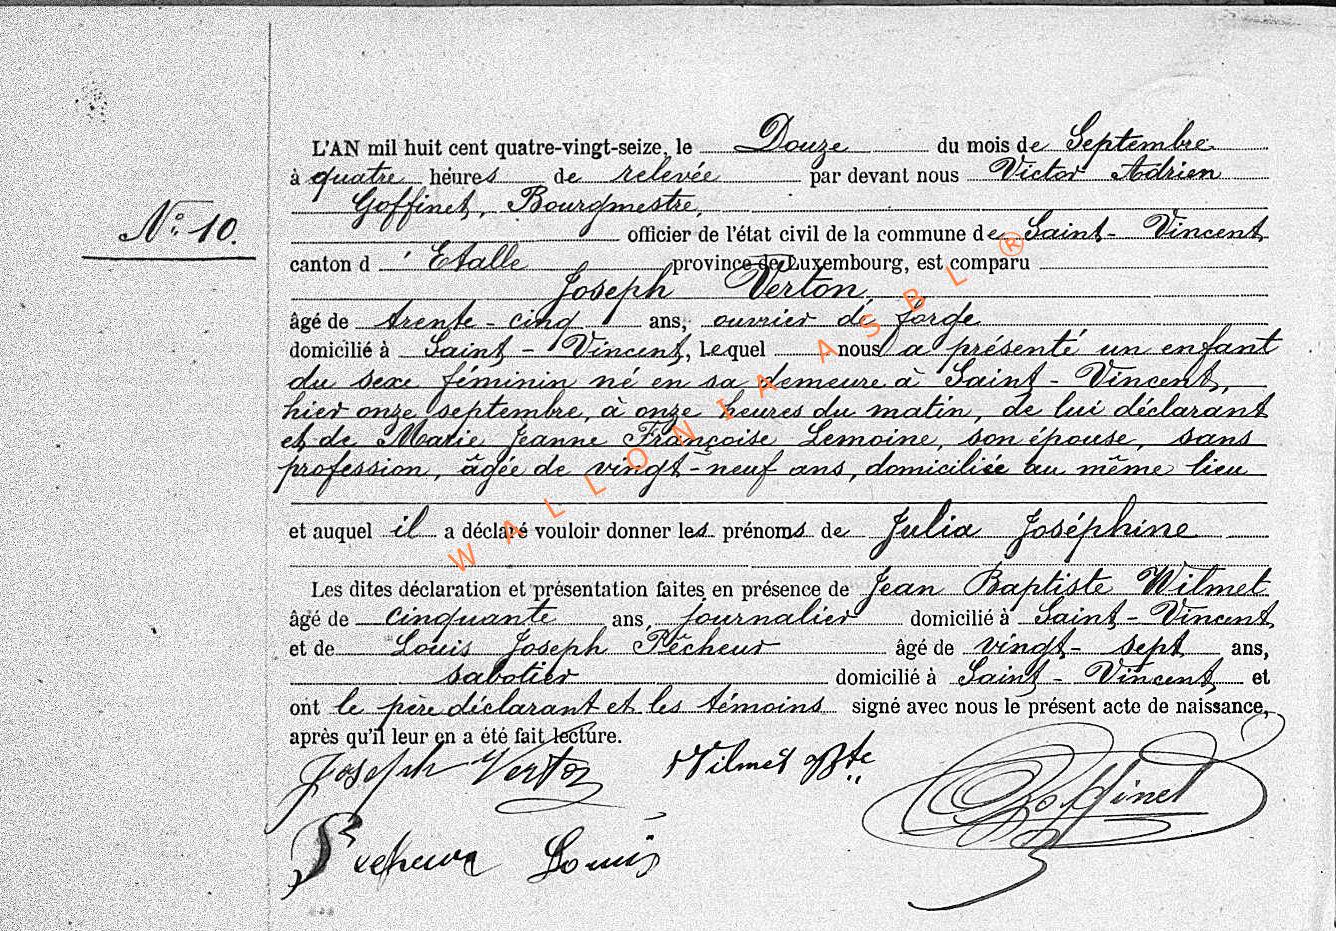 L'AN mil huit cent quatre-vingt-seize, le Douze du mois de Septembre
à quatre heures de relevée par devant nous Victor Adrien
Goffinet, Bourgmestre,
N° 10.
officier de l'état civil de la commune de Saint-Vincent
canton d'Etalle province de Luxembourg, est comparu
Joseph Verton,
âgé de trente-cinq ans, ouvrier de forge
domicilié à Saint-Vincent, lequel nous a présenté un enfant
du sexe féminin né en sa demeure à Saint-Vincent,
hier onze septembre, à onze heures du matin, de lui déclarant
et de Marie Jeanne Françoise Lemoine, son épouse, sans
profession, âgée de vingt-neuf ans, domiciliée au même lieu
et auquel il a déclaré vouloir donner les prénoms de Julia Joséphine
Les dites déclaration et présentation faites en présence de Jean Baptiste Wilmet
âgé de cinquante ans, journalier domicilié à Saint-Vincent,
et de Louis Joseph Pêcheur âgé de vingt-sept ans,
sabotier domicilié à Saint-Vincent, et
ont le père déclarant et les témoins signé avec nous le présent acte de naissance,
après qu'il leur en a été fait lecture.
Joseph Verton Wilmet Bte Goffinet
Pecheur Louis
WALLONIA ASBL ®